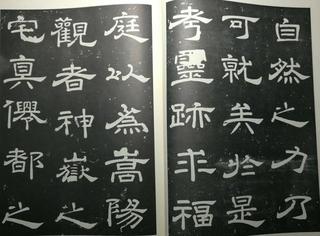 自然之力乃
可就美於是
考靈跡求福
庭以為嵩陽
觀者神嶽之
宅真僊都之